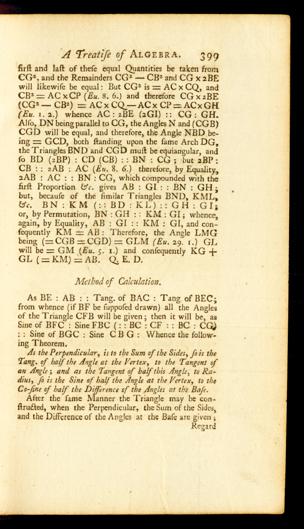 A Treatise of ALGEBRA. 399
first and last of these equal Quantities be taken from
CG², and the Remainders CG² — CB² and CG × 2BE
will likewise be equal: But CG² is = AC × CQ, and
CB² = AC × CP (Eu. 8. 6.) and therefore CG × 2BE
(CG² — CB²) = AC × CQ — AC × CP = AC × GH
(Eu. 1. 2.) whence AC : 2BE (2GI) :: CG : GH.
Also, DN being parallel to CG, the Angles N and (CGB)
CGD will be equal, and therefore, the Angle NBD be-
ing = GCD, both standing upon the same Arch DG,
the Triangles BND and CGD must be equiangular, and
so BD (2BP) : CD (CB) :: BN : CG ; but 2BP :
CB :: 2AB : AC (Eu. 8. 6.) therefore, by Equality,
2AB : AC :: BN : CG, which compounded with the
first Proportion &c. gives AB : GI :: BN : GH ;
but, because of the similar Triangles BND, KML,
&c. BN : KM (:: BD : KL) :: GH : GI ;
or, by Permutation, BN : GH :: KM : GI ; whence,
again, by Equality, AB : GI :: KM : GI, and con-
sequently KM = AB: Therefore, the Angle LMG
being (= CGB = CGD) = GLM (Eu. 29. 1.) GL
will be = GM (Eu. 5. 1.) and consequently KG +
GL (= KM) = AB. Q. E. D.
Method of Calculation.
As BE : AB :: Tang. of BAC : Tang of BEC;
from whence (if BF be supposed drawn) all the Angles
of the Triangle CFB will be given; then it will be, as
Sine of BFC : Sine FBC (:: BC : CF :: BC : CG)
:: Sine of BGC : Sine CBG : Whence the follow-
ing Theorem.
As the Perpendicular, is to the Sum of the Sides, so is the
Tang. of half the Angle at the Vertex, to the Tangent of
an Angle; and as the Tangent of half this Angle, is to Ra-
dius, so is the Sine of half the Angle at the Vertex, to the
Co-sine of half the Difference of the Angles at the Base.
After the same Manner the Triangle may be con-
structed, when the Perpendicular, the Sum of the Sides,
and the Difference of the Angles at the Base are given;
Regard